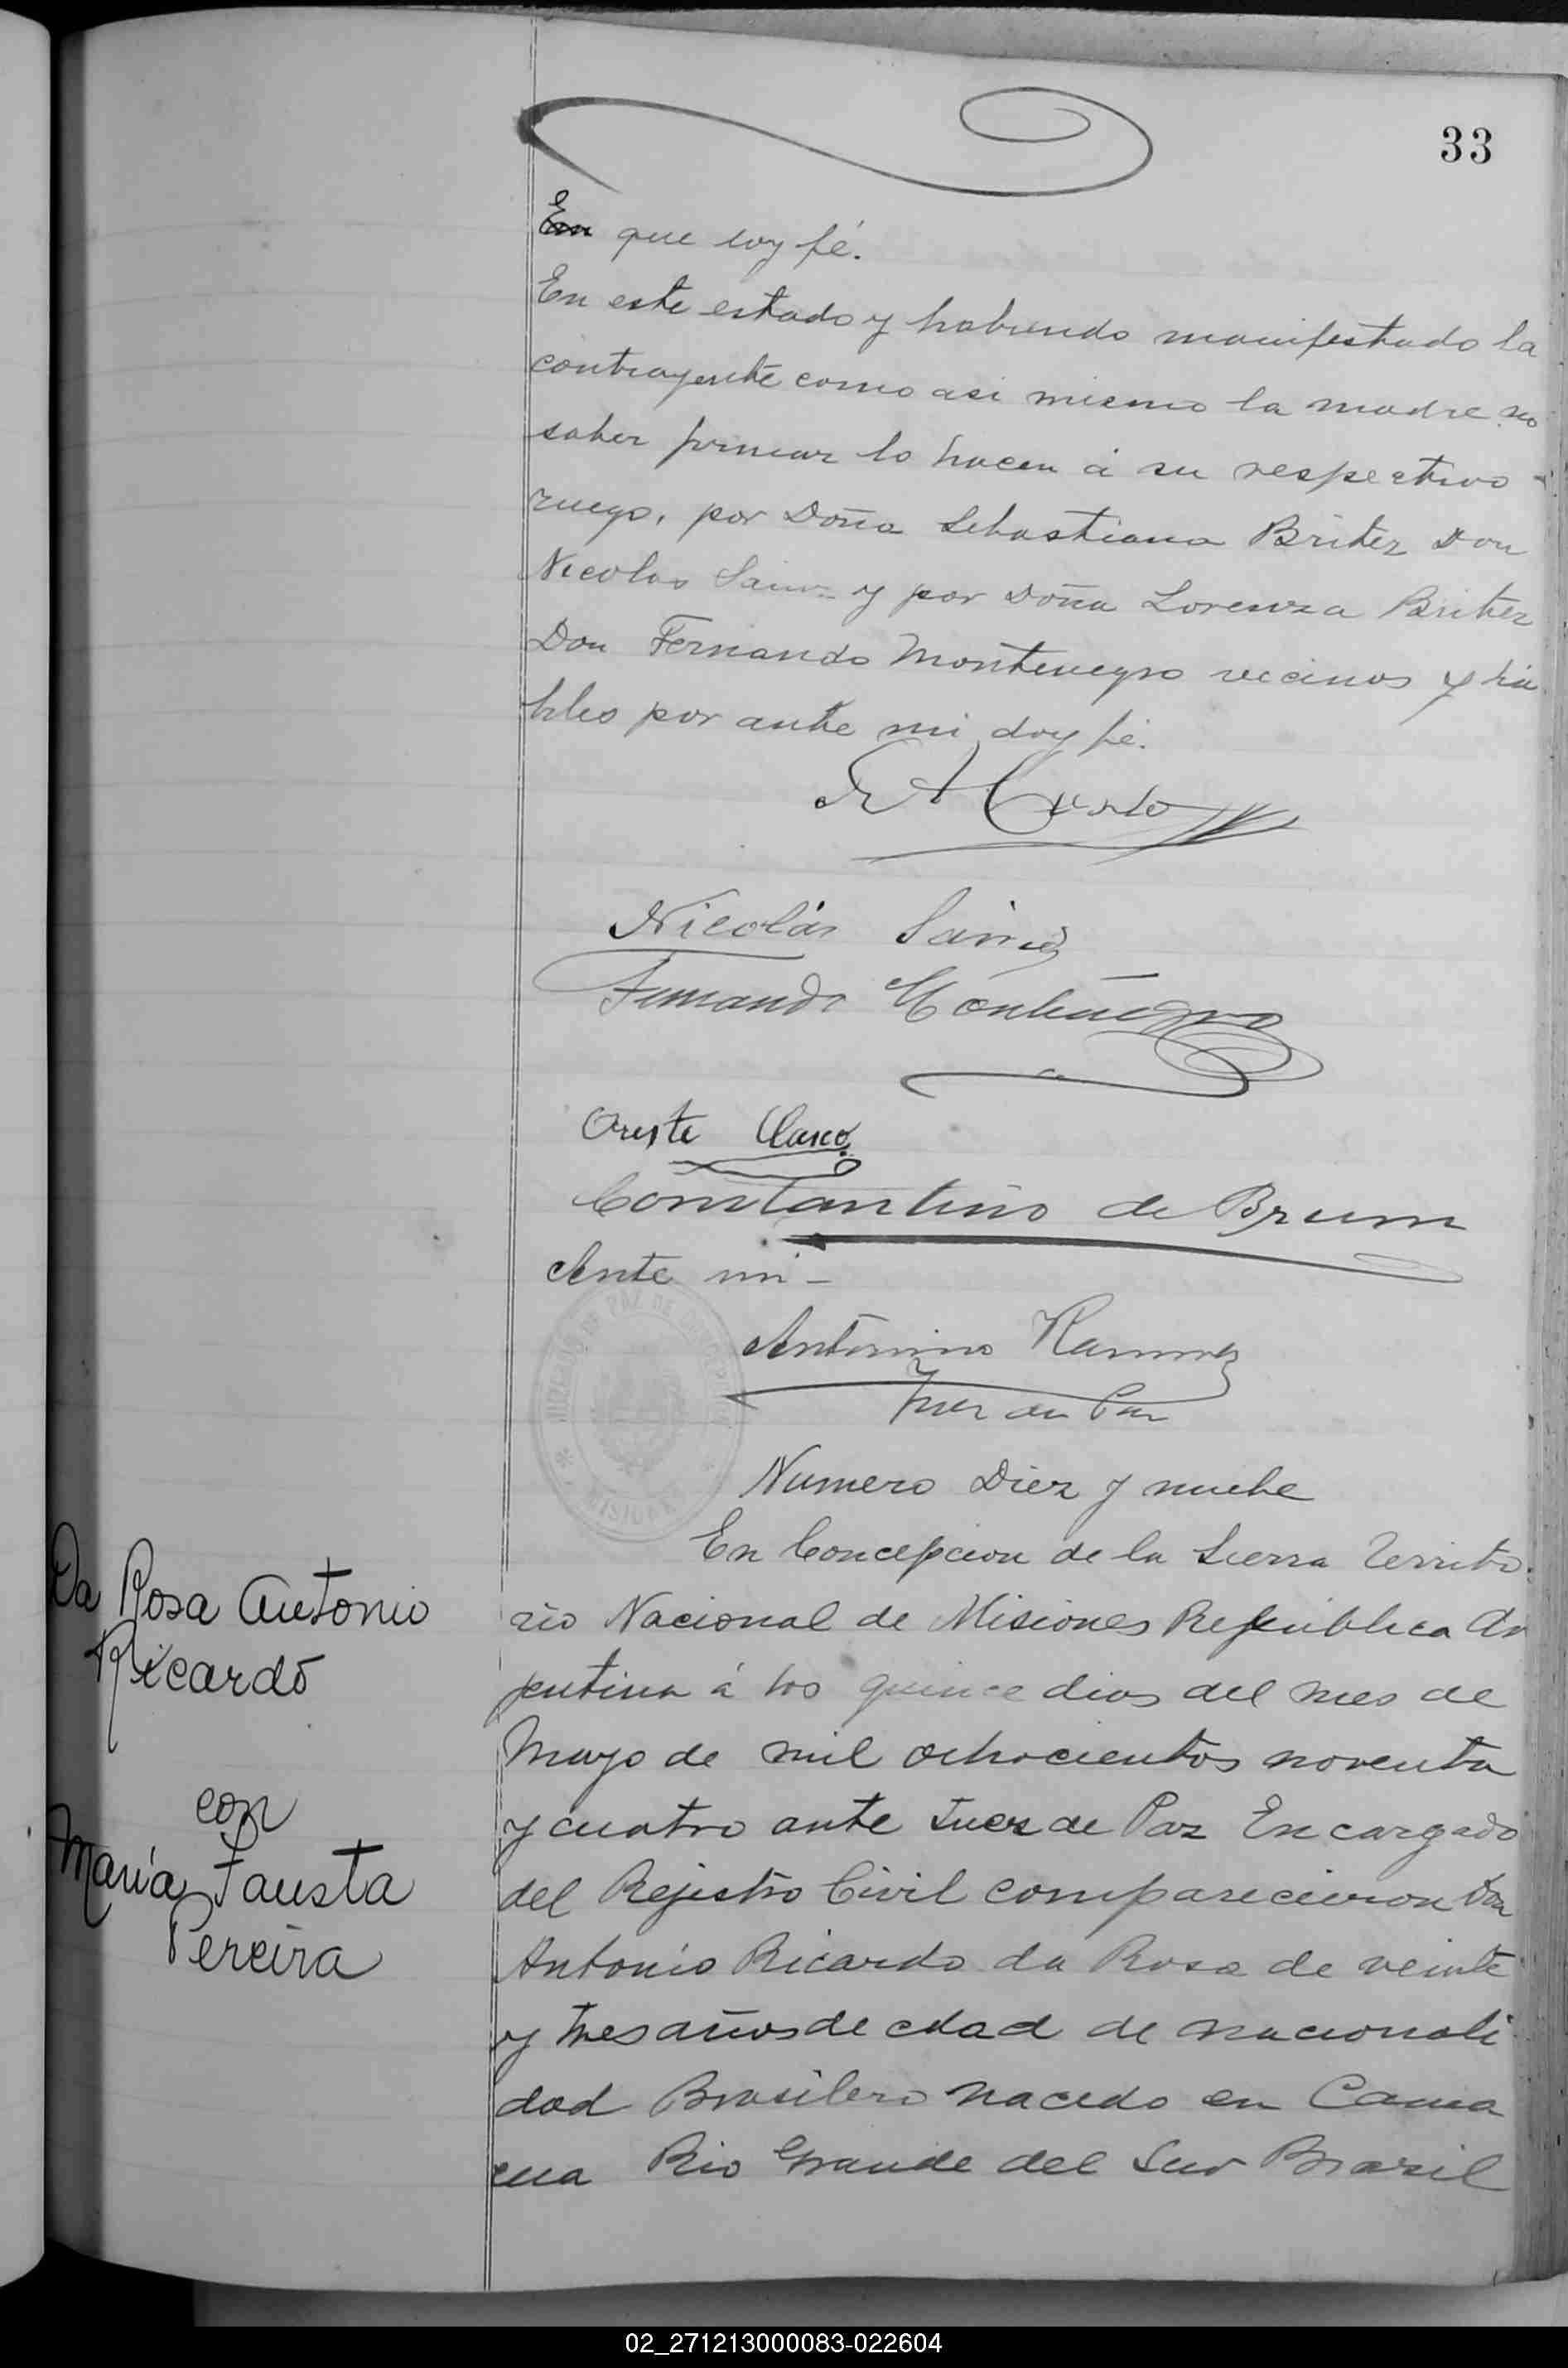 33
En que doy fé.
En este estado y habiendo manifestado la
contrayente como asi mismo la madre no
saber firmar lo hacen á su respectivo
ruego, por Doña Sebastiana Britez Don
Nicolas Sainz y por Doña Lorenza Britez
Don Fernando Montenegro vecinos y há
biles por ante mi doy fé.
Nicolás
Fernando Montenegro
Oreste
Constantino de Brum
Ante mi –
JUZGADO DE PAZ DE CONCEPCION
MISIONES
Antonino Ramirez
Juez de Paz
Numero Diez y nuebe
Da Rosa Antonio
Ricardo
con
María Fausta
Pereira
En Concepcion de la Sierra Territo
rio Nacional de Misiones Republica Ar
jentina á los quince dias del mes de
Mayo de mil ochocientos noventa
y cuatro ante Juez de Paz Encargado
del Rejistro Civil comparecieron Don
Antonio Ricardo da Rosa de veinte
y tres años de edad de nacionali
dad Brasilero nacido en Cama
cua Rio Grande del Sur Brazil
02_271213000083-022604